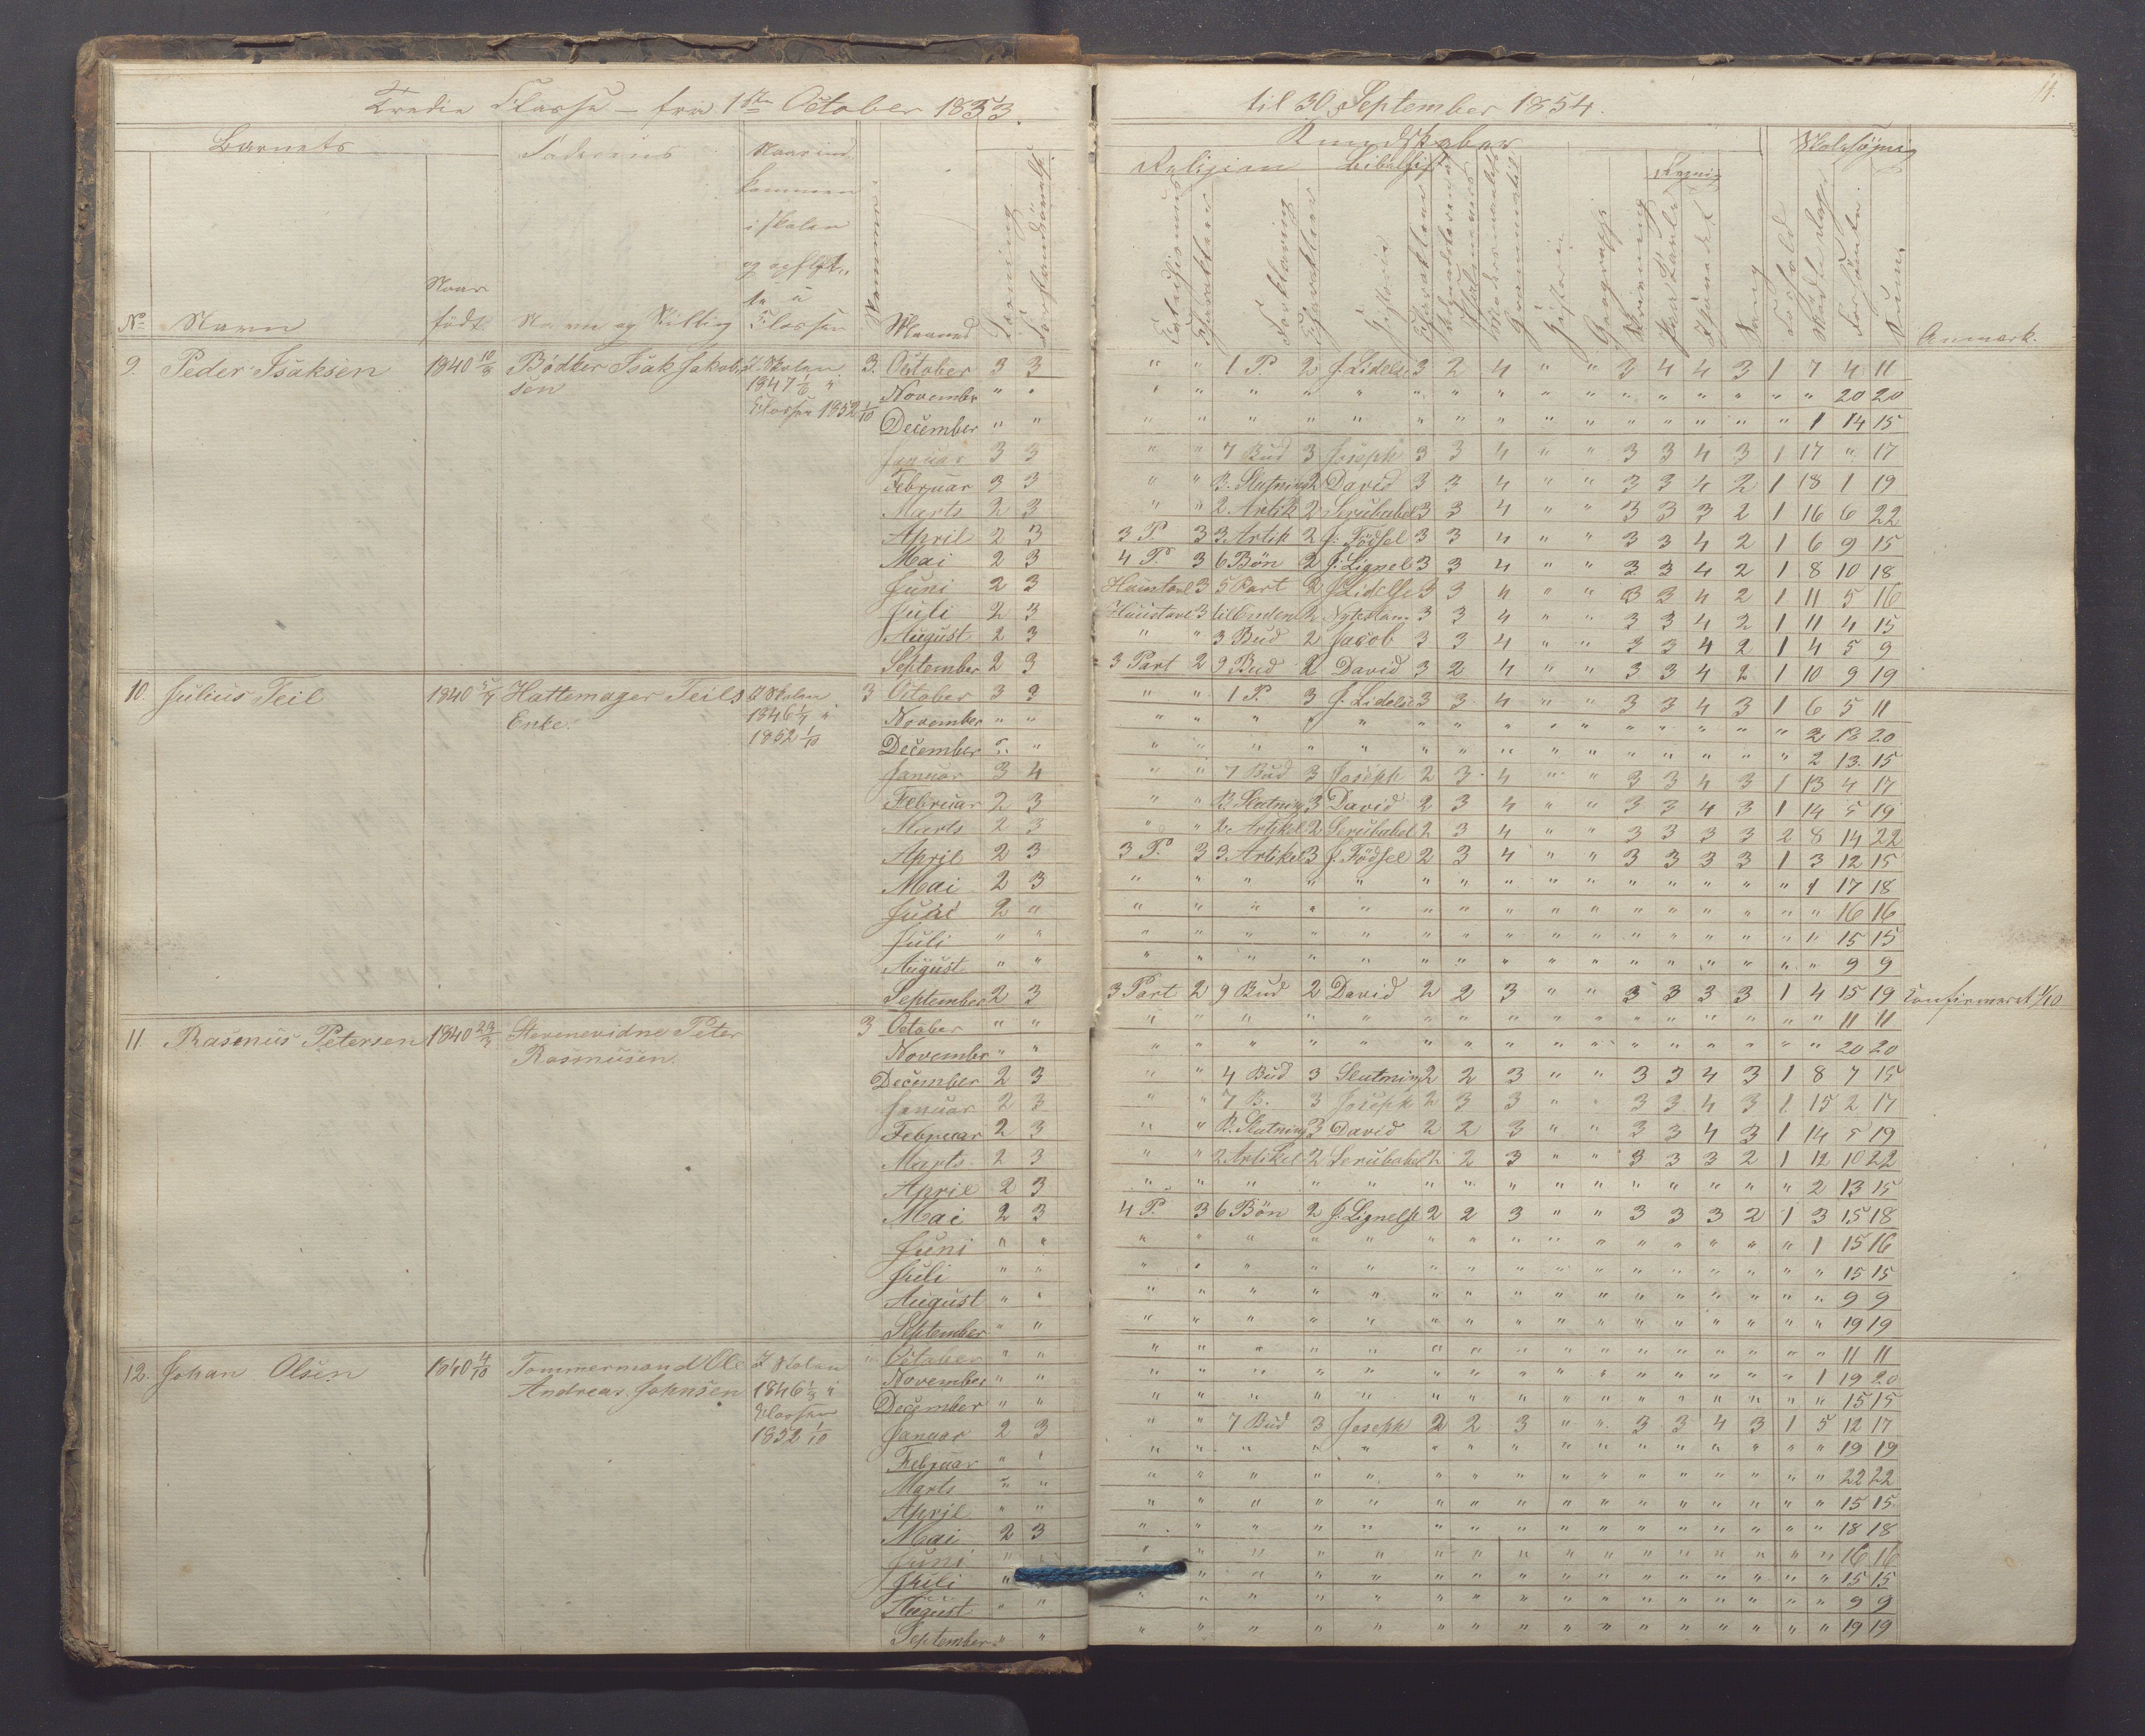 Tredie Classe - fra 1ste October 1853.
til 30 September 1854.
11.
Barnets
Faderens
Naar ind
kommen
i skolen
Nummer
Maaned
Kundskaber
Religion
Skolesøgning
Historie
Geographi
Skrivning
Sang
Forhold
Forsømte
Summa
Anmærk.
No Navn
Naar
født
Navn og Stilling
Classen
9. Peder Isaksen 1840 10/3 Bødker Isak Jakob- I Skolen 3. October 3 3 " " 1 P. 2 J. Lidelse 3 2 4 " " 3 4 4 3 1 7 4 11
sen 1847 1/6 i November " " " " " " " " " " " " " " " " " " " 20 20
Classen 1852 1/10 December " " " " " " " " " " " " " " " " " 1 14 15
Januar 3 3 " " 7 Bud 3 Joseph 3 3 4 " " 3 3 4 3 1 17 " 17
Februar 3 3 " " B. Slutning 2 David 3 3 4 " " 3 3 4 2 1 18 1 19
Marts 2 3 " " 2. Artik 2 Serubabel 3 3 4 " " 3 3 3 2 1 16 6 22
April 2 3 3 P. 3 3. Artik 2 J: Fødsel 3 3 4 " " 3 3 4 2 1 6 9 15
Mai 2 3 4 P. 3 6 Bøn 2 J: Lignels 3 3 4 " " 3 3 4 2 1 8 10 18
Juni 2 3 Huustavl 3 5 Part 2 J Lidelse 3 3 4 " " 3 3 4 2 1 11 5 16
Juli 2 3 Huustavl 3 til Enden 2 3 3 4 " " 3 3 4 2 1 11 4 15
August 2 3 " " 3 Bud 2 Jacob 3 3 4 " " 3 3 4 2 1 4 5 9
September 2 3 3 Part 2 9 Bud 2 David 3 2 4 " " 3 3 4 2 1 10 9 19
10. Julius Teil 1840 5/7 Hattemager Teils I Skolen 3 October 3 3 " " 1 P. 3 J. Lidelse 3 3 4 " " 3 3 4 3 1 6 5 11
Enke. 1846 1/7 i November " " " " " " " " " " " " " " " " " 2 18 20
1852 1/10 December " " " " " " " " " " " " " " " " " 2 13 15
Januar 3 4 " " 7 Bud 3 Joseph 2 3 4 " " 3 3 4 3 1 13 4 17
Februar 2 3 " " B. Slutning 3 David 2 3 4 " " 3 3 4 3 1 14 5 19
Marts 2 3 " " 2. Artikel 2 Serubabel 2 3 4 " " 3 3 3 3 2 8 14 22
April 2 3 3 P. 3 3. Artikel 3 J. Fødsel 2 3 4 " " 3 3 3 3 1 3 12 15
Mai 2 3 " " " " " " " " " " " " " " " 1 17 18
Juni 2 " " " " " " " " " " " " " " " " " 16 16
Juli " " " " " " " " " " " " " " " " " " 15 15
August " " " " " " " " " " " " " " " " " " 9 9
September 2 3 3 Part 2 9 Bud 2 David 2 2 3 " " 3 3 3 3 1 4 15 19 Confirmeret 1/10
11. Rasmus Petersen 1840 23/7 Stevnevidne Peter 3 October " " " " " " " " " " " " " " " " " " 11 11
Rasmusen November " " " " " " " " " " " " " " " " " " 20 20
December 2 3 " " 4 Bud 3 Slutning 2 2 3 " " 3 3 4 3 1 8 7 15
Januar 2 3 " " 7 B. 3 Joseph 2 3 3 " " 3 3 4 3 1 15 2 17
Februar 2 3 " " B. Slutning 3 David 2 2 3 " " 3 3 4 3 1 14 5 19
Marts 2 3 " " 2 Artikel 2 Serubabel 2 2 3 " " 3 3 3 2 1 12 10 22
April 2 3 " " " " " " " " " " " " " " " 2 13 15
Mai 2 3 4 P. 3 6 Bøn 2 J. Lignelse 2 2 3 " " 3 3 3 2 1 3 15 18
Juni " " " " " " " " " " " " " " " " " 1 15 16
Juli " " " " " " " " " " " " " " " " " " 15 15
August " " " " " " " " " " " " " " " " " " 9 9
September " " " " " " " " " " " " " " " " " " 19 19
12. Johan Olsen 1840 4/10 Tømmermand Ole I Skolen " October " " " " " " " " " " " " " " " " " " 11 11
Andreas Johnsen 1846 1/3 i November " " " " " " " " " " " " " " " " " 1 19 20
Classen December " " " " " " " " " " " " " " " " " " 15 15
1852 1/10 Januar 2 3 " " 7 Bud 3 Joseph 2 2 3 " " 3 3 4 3 1 5 12 17
Februar " " " " " " " " " " " " " " " " " " 19 19
Marts " " " " " " " " " " " " " " " " " " 22 22
April " " " " " " " " " " " " " " " " " " 15 15
Mai 2 3 " " " " " " " " " " " " " " " " 18 18
Juni " " " " " " " " " " " " " " " " " " 16 16
Juli " " " " " " " " " " " " " " " " " 15 15
August " " " " " " " " " " " " " " " " " " 9 9
September " " " " " " " " " " " " " " " " " " 19 19